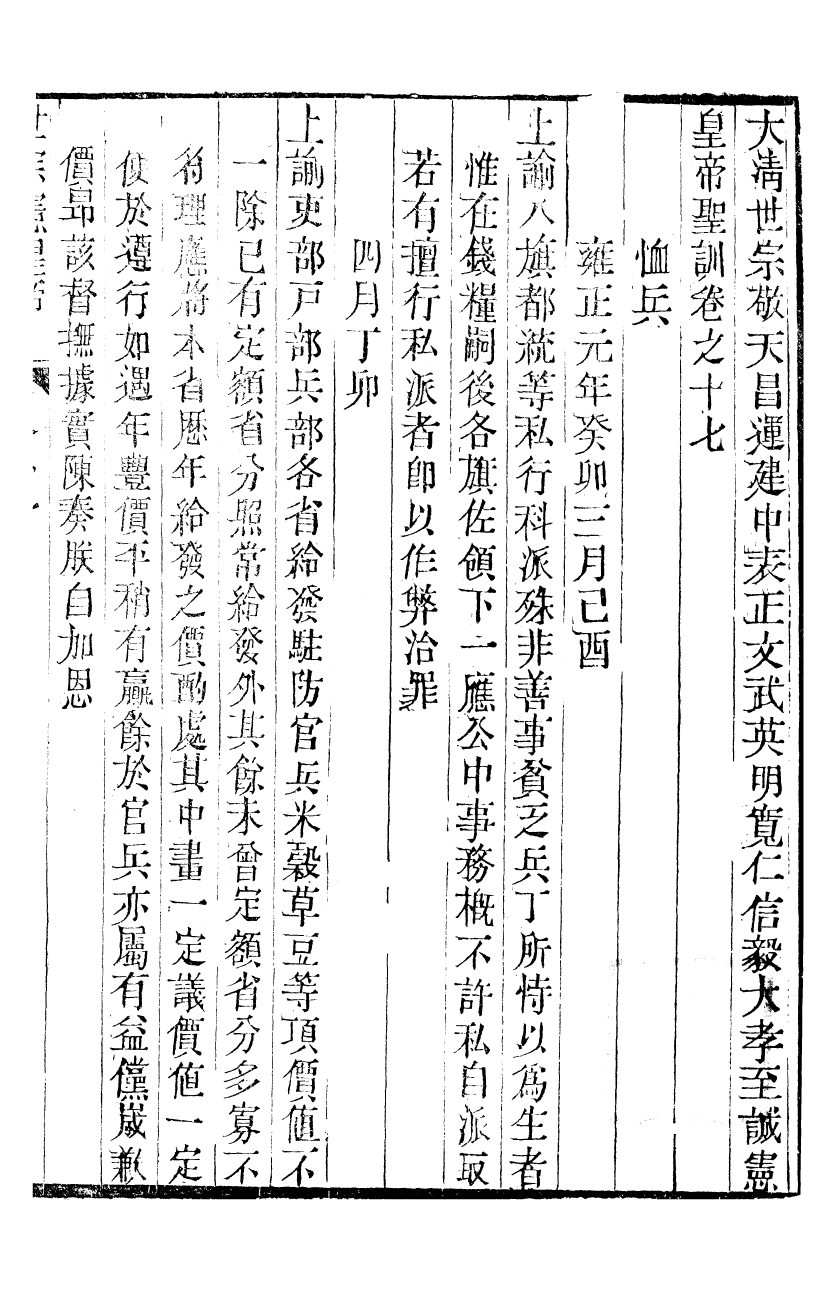 大清世宗敬天昌運建中表正文武英明寬仁信毅大孝至誠憲
皇帝聖訓卷之十七
恤兵
雍正元年癸卯三月己酉
上諭八旗都統等私行科派殊非善事貧乏兵丁所恃以爲生者
惟在錢糧嗣後各旗佐領下一應公中事務槪不許私自派取
若有擅行私派者卽以作弊治罪
四月丁卯
上諭吏部戸部兵部各省給發駐防官兵米穀草豆等項價值不
一除已有定額省分照常給發外其餘未曾定額省分多寡不
符理應將本省歷年給發之價酌處其中畫一定議價值一定
便於遵行如遇年豐價平稍有贏餘於官兵亦屬有益儻歲歉
價昻該督撫據實陳奏朕自加恩